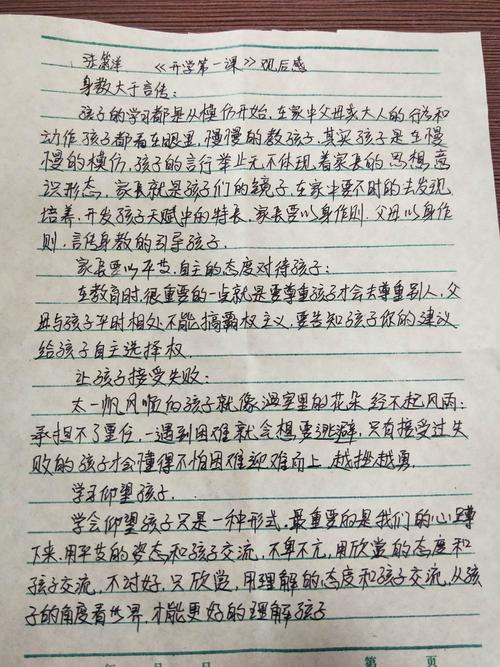 《开学第一课》观后感
身教大于言传:
孩子的学习都是从模仿开始,在家中父母亲大人的行为和
动作,孩子都看在眼里,慢慢的教孩子,其实孩子是在慢
慢的模仿,孩子的言行举止无不体现着家长的思想,意
识形态,家长就是孩子们的镜子,在家中要不时的去发现
培养,开发孩子天赋中的特长,家长要以身作则.父母以身作
则,言传身教的引导孩子.
家长要以平等.自主的态度对待孩子:
在教育时,很重要的一点就是要尊重孩子才会去尊重别人,父
母与孩子平时相处不能搞霸权主义,要告知孩子你的建议
给孩子自主选择权.
让孩子接受失败:
太一帆风顺的孩子就像温室里的花朵经不起风雨:
承担不了重任,一遇到困难就会想要逃避,只有接受过失
败的孩子才会懂得不怕困难迎难而上,越挫越勇.
学习仰望孩子.
学会仰望孩子只是一种形式,最重要的是我们的心蹲
下来,用平等的姿态和孩子交流,不卑不亢,用欣赏的态度和
孩子交流,不讨好,只欣赏,用理解的态度和孩子交流,从孩
子的角度看世界,才能更好的理解孩子
年 月 日 第 页